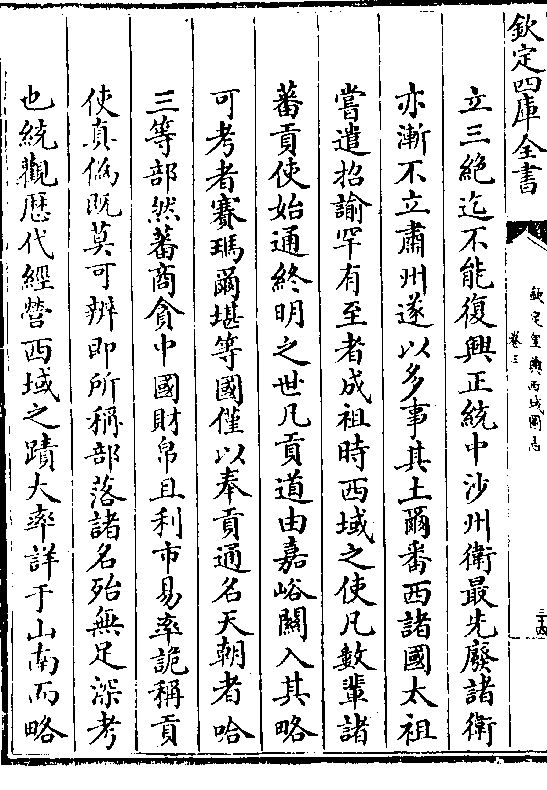 欽定四庫全書
欽定皇輿西域圖志
卷三
三十四
立三絕迄不能復興正統中沙州衛最先廢諸衛
亦漸不立肅州遂以多事其土爾番西諸國太祖
嘗遣招諭罕有至者成祖時西域之使凡數輩諸
蕃貢使始通終明之世凡貢道由嘉峪關入其略
可考者賽瑪爾堪等國僅以奉貢通名天朝者哈
三等部然蕃商貪中國財帛且利市易率詭稱貢
使真偽既莫可辨即所稱部落諸名殆無足深考
也統觀歷代經營西域之蹟大率詳于山南而略